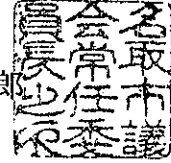 名取市議
会常任委
員長之印
郎